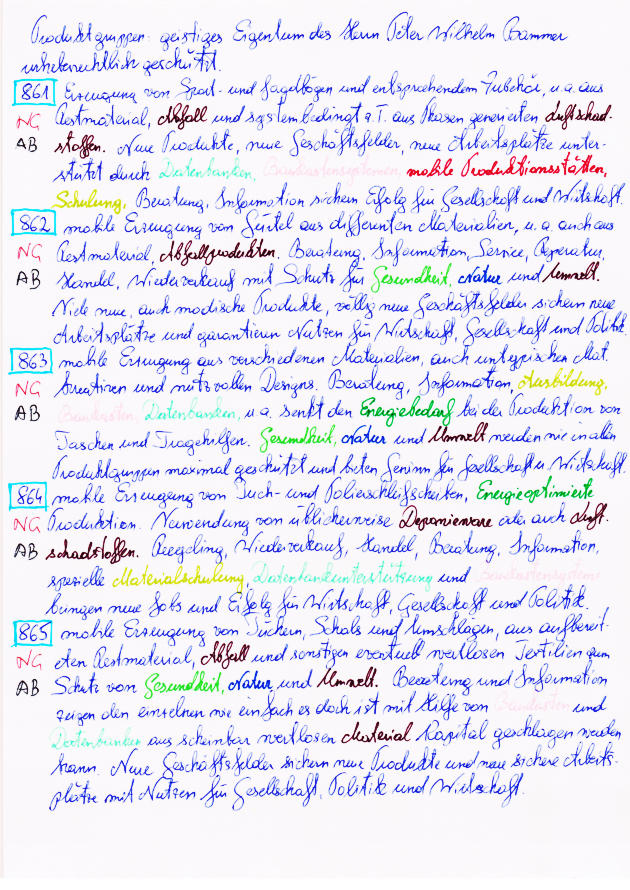 Produktgruppen: geistiges Eigentum des Herrn Peter Wilhelm Bammer
urheberrechtlich geschützt.
861 Erzeugung von Sport- und Jagdbögen und entsprechendem Zubehör, u.a. aus
NG Restmaterial, Abfall und systembedingt z.T. aus Phasen generierten Luftschad-
AB stoffen. Neue Produkte, neue Geschäftsfelder, neue Arbeitsplätze unter-
stützt durch Datenbanken, Baukastensystemen, mobile Produktionsstätten,
Schulung, Beratung, Information sichern Erfolg für Gesellschaft und Wirtschaft.
862 mobile Erzeugung von Gürtel aus differenten Materialien, u.a. auch aus
NG Restmaterial, Abfallprodukten. Beratung, Information, Service, Reparatur,
AB Handel, Wiederverkauf mit Schutz für Gesundheit, Natur und Umwelt.
Viele neue, auch modische Produkte, völlig neue Geschäftsfelder sichern neue
Arbeitsplätze und garantieren Nutzen für Wirtschaft, Gesellschaft und Politik.
863 mobile Erzeugung aus verschiedenen Materialien, auch untypischen Mat.
NG kreativen und nutzvollen Designs. Beratung, Information, Ausbildung,
AB Baukasten, Datenbanken, u.a. senkt den Energiebedarf bei der Produktion von
Taschen und Tragehilfen. Gesundheit, Natur und Umwelt werden wie in allen
Produktgruppen maximal geschützt und bieten Gewinn für Gesellschaft u. Wirtschaft.
864 mobile Erzeugung von Tuch- und Polierschleifscheiben, Energieoptimierte
NG Produktion. Verwendung von üblicherweise Deponieware oder auch Luft-
AB schadstoffen. Recycling, Wiederverkauf, Handel, Beratung, Information,
spezielle Materialschulung, Datenbankunterstützung und Baukastensysteme
bringen neue Jobs und Erfolg für Wirtschaft, Gesellschaft und Politik.
865 mobile Erzeugung von Tüchern, Schals und Umschlägen, aus aufbereit-
NG eten Restmaterial, Abfall und sonstigen eventuell wertlosen Textilien zum
AB Schutz von Gesundheit, Natur und Umwelt. Beratung und Information
zeigen den einzelnen wie einfach es doch ist mit Hilfe von Baukasten und
Datenbanken aus scheinbar wertlosen Material Kapital geschlagen werden
kann. Neue Geschäftsfelder sichern neue Produkte und neue sichere Arbeits-
plätze mit Nutzen für Gesellschaft, Politik und Wirtschaft.